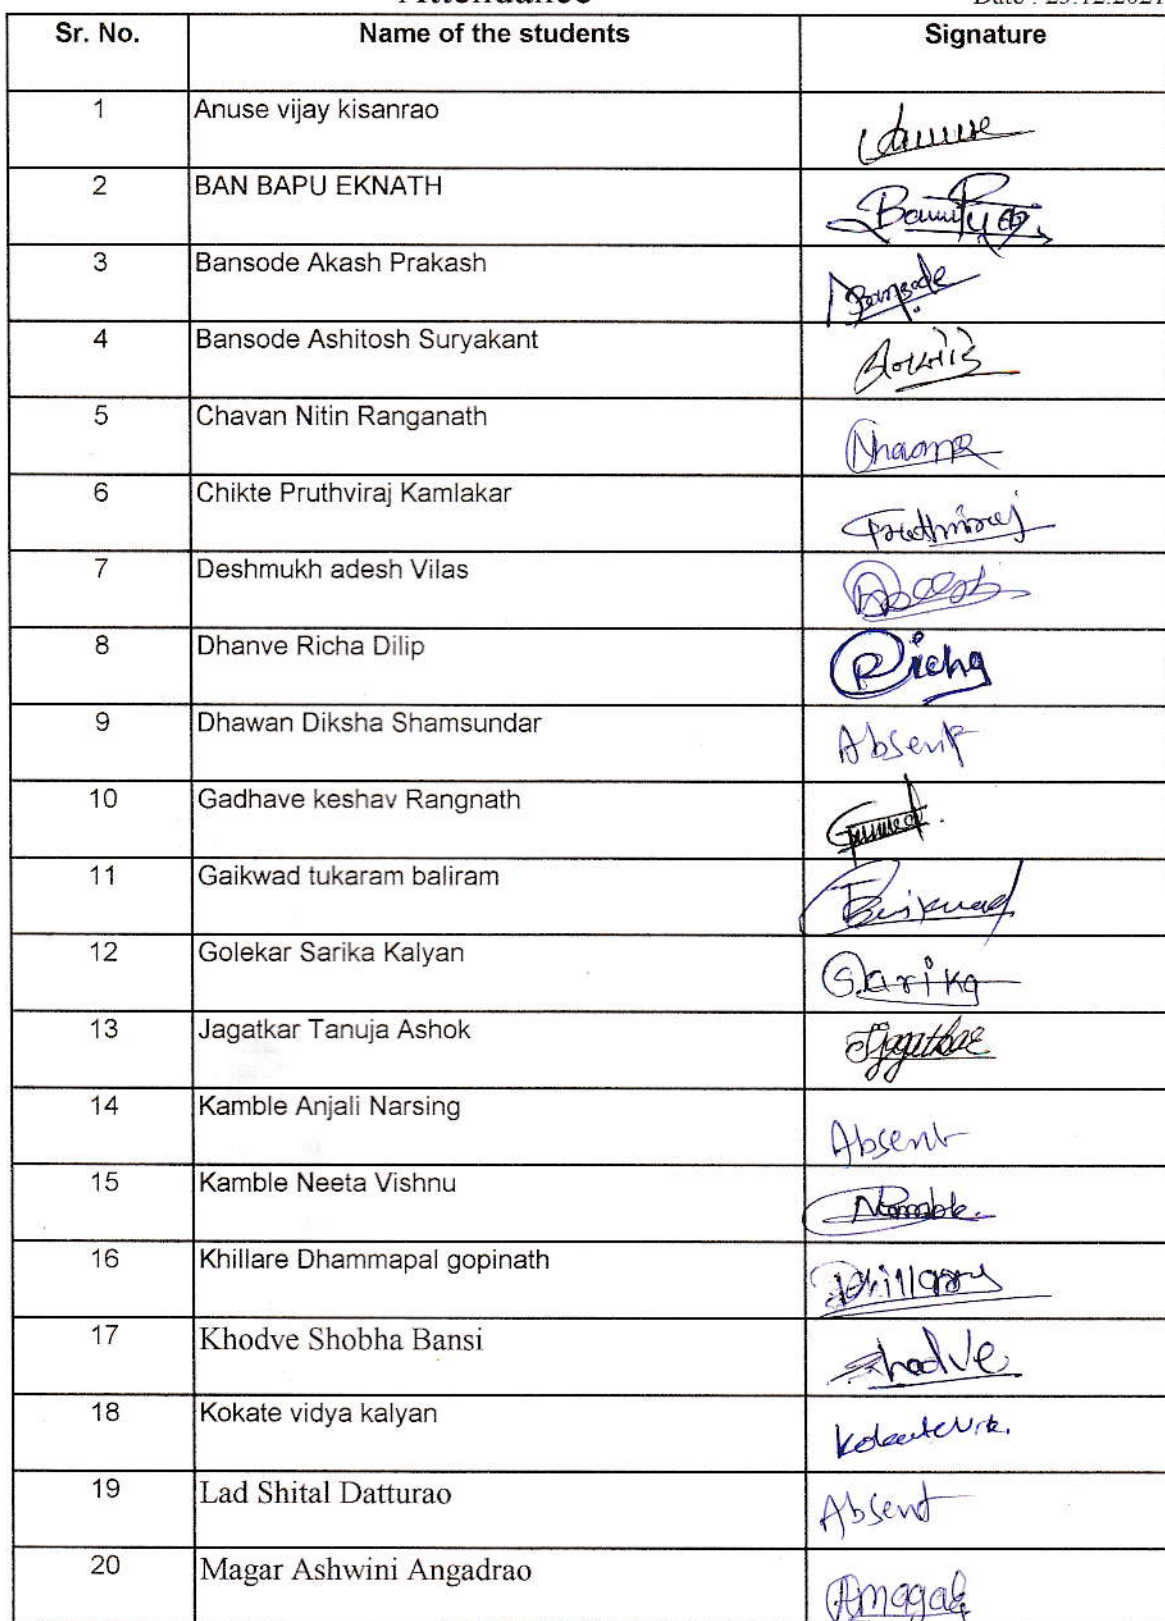 Attendance Date : 29.12.2021
Sr. No. Name of the students Signature
1 Anuse vijay kisanrao
2 BAN BAPU EKNATH
3 Bansode Akash Prakash Bansode
4 Bansode Ashitosh Suryakant
5 Chavan Nitin Ranganath
6 Chikte Pruthviraj Kamlakar Pruthviraj
7 Deshmukh adesh Vilas
8 Dhanve Richa Dilip Richa
9 Dhawan Diksha Shamsundar Absent
10 Gadhave keshav Rangnath
11 Gaikwad tukaram baliram
12 Golekar Sarika Kalyan Sarika
13 Jagatkar Tanuja Ashok
14 Kamble Anjali Narsing Absent
15 Kamble Neeta Vishnu
16 Khillare Dhammapal gopinath
17 Khodve Shobha Bansi Khodve
18 Kokate vidya kalyan
19 Lad Shital Datturao Absent
20 Magar Ashwini Angadrao